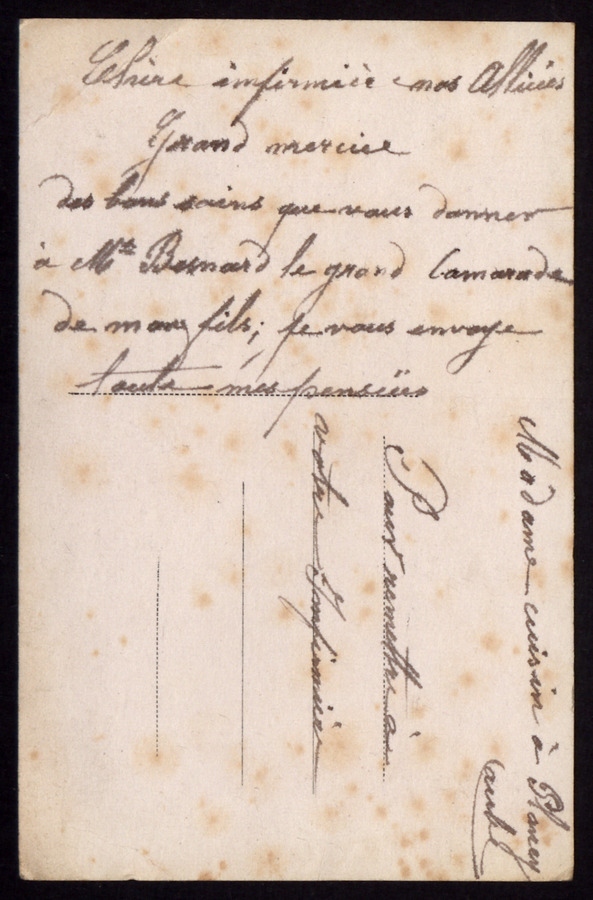 Chère infirmièr nos Alliées
Grand mercie
des bons soins que vous donner
à Mr Besnard le grand Camarade
de mon fils; je vous envoye
toute mes pensiües
Madame cuisin à Plancy
(aube)
Pour remettre à
votre Infirmièr